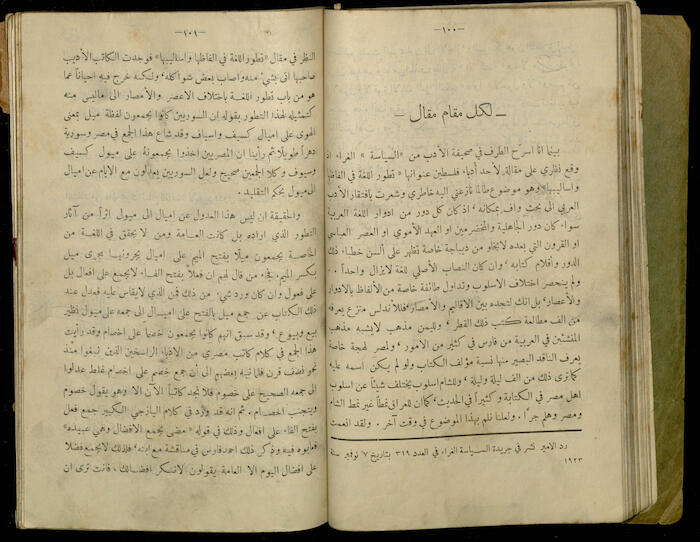 —١٠٠—
— لكل مقام مقال —
بينما انا اسرّح الطرف في صحيفة الأدب من «السياسة» الغراء اذ
وقع نظري على مقالة لأحد أدباء فلسطين عنوانها «تطور اللغة في الفاظها
واساليبها» وهو موضوع طالما نازعني اليه خاطري وشعرت بافتقار الأدب
العربي الى بحث واف بمكانه ، اذ كان كل دور من ادوار اللغة العربية
سواء كان دور الجاهلية والمخضرمين او العهد الأموي او العصر العباسي
او القرون التي بعده لايخلو من ديباجة خاصة تظهر على ألسن خطباء ذلك
الدور وأقلام كتابه ، وان كان النصاب الأصلي للغة لا يزال واحداً . .
ولم ينحصر اختلاف الاسلوب وتداول طائفة خاصة من الألفاظ بالادوار
والأعصار ، بل انك لتجده بين الاقاليم والأمصار ، فللأندلس منزع يعرفه
من الف مطالعة كتب ذلك القطر ، ولليمن مذهب لايشبه مذهب
المنشئين في العربية من فارس في كثير من الامور ، ولمصر لهجة خاصة
يعرف الناقد البصير منها نسبة مؤلف الكتاب ولو لم يكن اسمه عليه
كما ترى ذلك من الف ليلة وليلة ، وللشام اسلوب يختلف شيئاً عن اسلوب
اهل مصر في الكتابة و كثيراً في الحديث، كما ان للعراق نمطاً غير نمط الشام
ومصر وهلم جرّا . ولعلنا نلم بهذا الموضوع في وقت آخر . ولقد انعمت
رد الامير نشر في جريدة السياسة الغراء في العدد ٣١٩ بتاريخ ٧ نوفمبر سنة
١٩٢٣
—١٠١—
النظر في مقال «تطور اللغة في الفاظها واساليبها» فوجدت الكاتب الأديب
صاحبها اتى بشيء منه واصاب بعض شواكله ، ولكنه خرج فيه احياناً عما
هو من باب تطور اللغة باختلاف الاعصر والأمصار الى ماليس منه
كتمثيله لهذا التطور بقوله ان السوريين كانوا يجمعون لفظة ميل بمعنى
الهوى على اميال كسيف واسياف وقد شاع هذا الجمع في مصر وسورية
دهراً طويلاً ثم رأينا ان المصريين اخذوا يجمعونه على ميول كسيف
وسيوف وكلا الجمعين صحيح ولعل السوريين يعدلون مع الايام عن اميال
الى ميول بحكم التقليد .
والحقيقة ان ليس هذا العدول عن اميال الى ميول اثراً من آثار
التطور الذي اراده بل كانت العامة ومن لا يحقق في اللغة من
الخاصة يجمعون ميلاً بفتح الميم على اميال يجرونها مجرى ميل
بكسر الميم. فجاء من قال لهم ان فعلاً بفتح الفاء لايجمع على افعال بل
على فعول وان كان ورد شيء من ذلك فمن الذي لايقاس عليه فعدل عند
ذلك الكتاب عن جمع ميل بالفتح على اميال الى جمعه على ميول نظير
بيع وبيوع ، وقد سبق انهم كانوا يجمعون خصماً على اخصام وقد رأيت
هذا الجمع في كلام كاتب مصري من الادباء الراسخين الذين نبغوا منذ
نحو نصف قرن فلما نبه بعضهم الى ان جمع خصم على اخصام غلط عدلوا
الى جمعه الصحيح على خصوم فلا نجد كاتباً الآن الا وهو يقول خصوم
ويتجنب اخصام . ثم انه قد ورد في كلام اليازجي الكبير جمع فعل
بفتح الفاء على افعال وذلك في قوله «مضى يجمع الافضال وهي عبيده»
فعابوه فيه وذكر ذلك احمد فارس في مناقشة مع ابنه، فلذلك لايجمع فضلاً
على افضال اليوم الا العامة يقولون لاننسكر افضالك ، فانت ترى ان